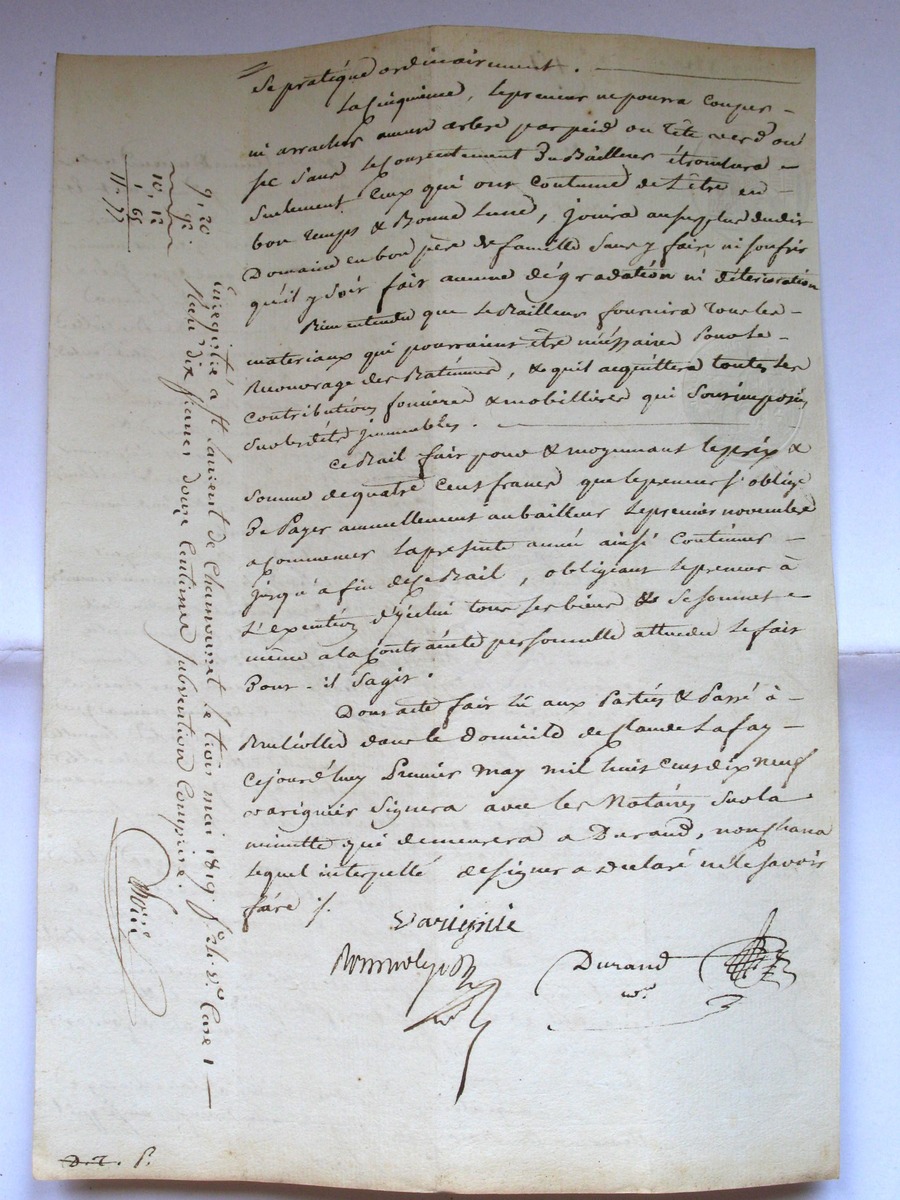 se pratique ordinairement.
La cinquieme, le preneur ne pourra couper
ni arracher aucun arbre par pied ou tête verd ou
sec sans le consentement du Bailleur étronsera
seulement ceux qui ont coutume de l'être en
bon temps & Bonne Lune, jouira au surplus dudit
Domaine en bon père de famille sans y faire, ni soufrir
qu'il y soit fait aucune dégradation ni déterioration
Bien entendu que le Bailleur fournira tous les
materiaux qui pourraient être nécéssaires pour le
Recouvrage des Batiments, & qu'il acquittera toutes les
contributions foncieres & mobillieres qui sont imposées
sur lesdits immeubles.
Ce Bail fait pour & moyennant le prix &
somme de quatre cent francs que le preneur s'oblige
De Payer annuellement au bailleur le premier novembre
a commencer la presente année ainsi continuer
jusqu'a fin de ce Bail, obligeant le preneur à
L'execution d'ycelui tous ses biens &
même a la contrainte personnelle attendu le fait
Dont il s'agit.
Dont acte fait lû aux Parties & Passé à
dans le domicile de Claude Lafay
cejourd'huy Premier may mil huit cent dix neuf
Varignier signera avec les Notaires sur la
minutte qui demeurera a Durand, non
lequel interpellé de signer a declaré ne le savoir
faire ./.
Varignié
Durand
nre
Enregistré a St Laurent de Chamousset le trois mai 1819 fo. 24. vo. Case 1
Reçu dix francs douze centimes subvention comprise.
9, 20
92.
10, 12
1 65
11. 77
D. T. P.